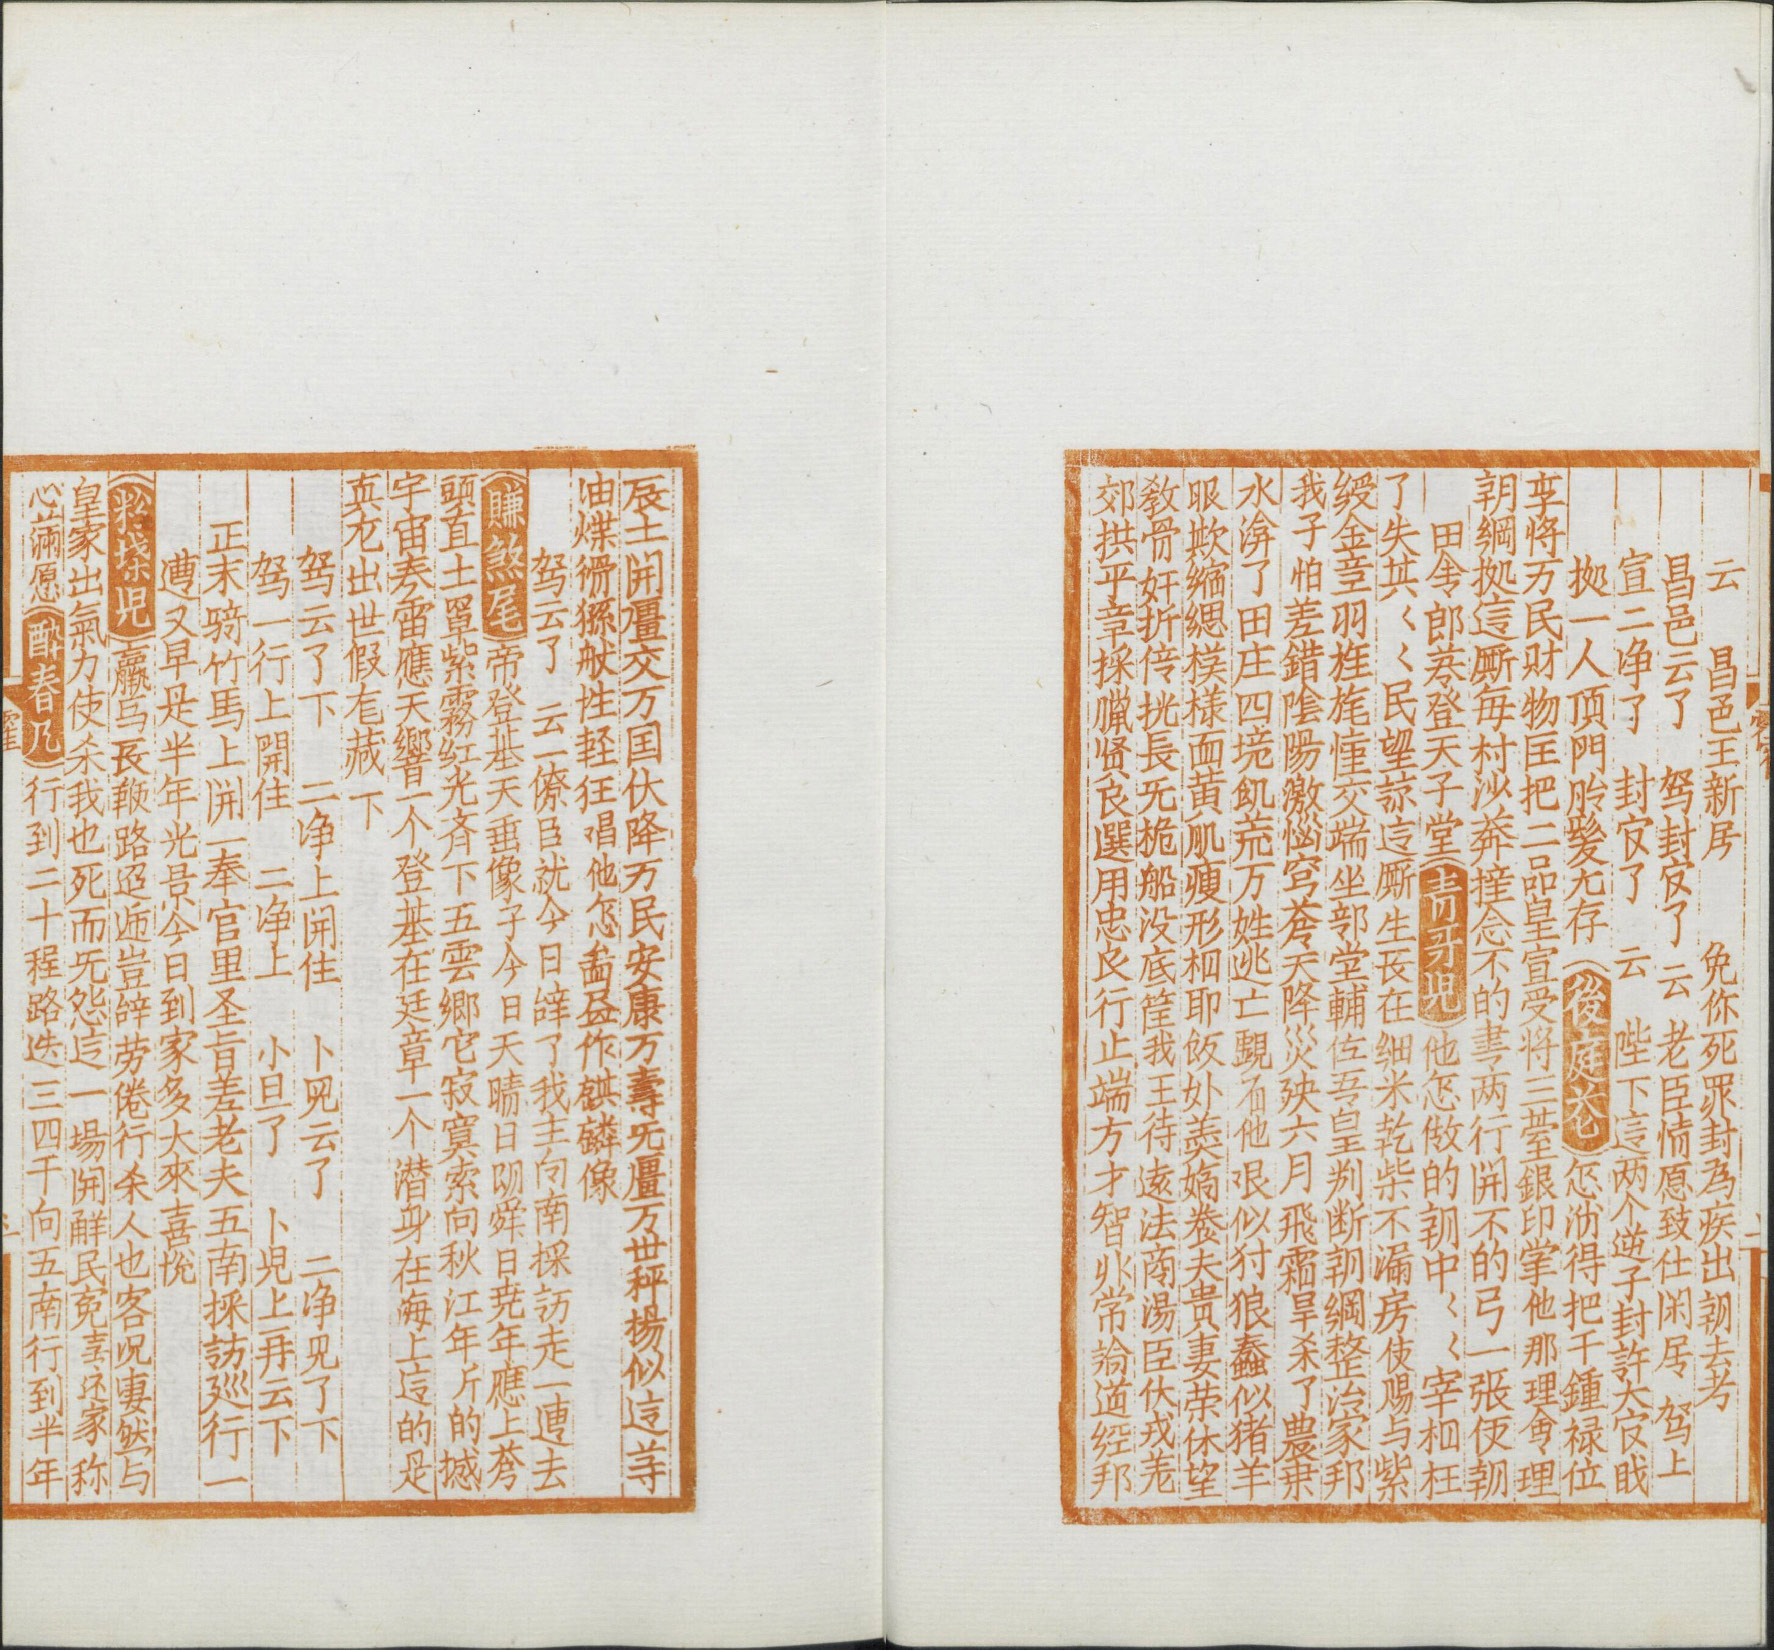 云　昌邑王新居　免你死罪封為疾出朝去考
昌邑云了　驾封㝎了　云　老臣情愿致仕闲居　驾上
宣二净了　封㝎了　云　陛下這两个逆子封許大㝎戝
拠一人頂門胎髮无存（後庭花）怎消得把千鍾禄位
享将万民财物匡把二品皇宣受将三䑓銀印掌他那理會理
朝綱拠這厮每村沙莽撞念不的書两行開不的弓一張便朝
田舍郎䒱登天子堂（青哥児）他怎做的朝中〻〻宰相枉
了失其〻〻民望諒這厮生長在细米乾柴不漏房使赐与紫
綬金章羽旌旄幢交端坐部堂輔佐吾皇判断朝綱整治家邦
我子怕差錯陰陽激惱穹蒼天降災殃六月飛霜旱杀了農桒
水渰了田庄四境飢荒万姓逃亡覷了他狠似犲狼蠢似猪羊
眼欺縮緦模樣面黄肌瘦形相耶飯处美㛂飬夫贵妻荣休望
教骨奸折倴挄長旡桅船没底筐我王待遠法商湯臣伏戎羌
郊拱平章採臘贤良選用忠良行止端方才智非常論道経邦
辰土開疆交万囯伏降万民安康万壽旡疆万世秤揚似這䒭
油煠猾猻献性軽狂唱他怎畵㞐作麒麟像
驾云了　云一僚臣就今日辞了我主向南採訪走一遭去
（賺煞尾）帝登基天垂像子今日天晴日朗舜日尭年應上蒼
頭直土罩紫霧紅光斉下五雲郷它寂寞索向秋江年斤的撼
宇宙春雷應天響一个登基在廷章一个潜身在海上這的是
真尤出世假㐌藏　下
驾云了下　二净上開住　卜児云了　二净児了下
驾一行上開住　二净上　小旦了　卜児上一再云下
正末騎竹馬上開一奉官里圣旨差老夫五南採訪廵行一
遭又早是半年光景今日到家多大來喜悅
（粉垜児）羸马長鞕路迢遞豈辞劳倦行杀人也客况凄然与
皇家出氣力使杀我也死而旡怨這一場開觧民寃喜还家称
心滿愿（酔春風）行到二十程路迭三四千向五南行到半年